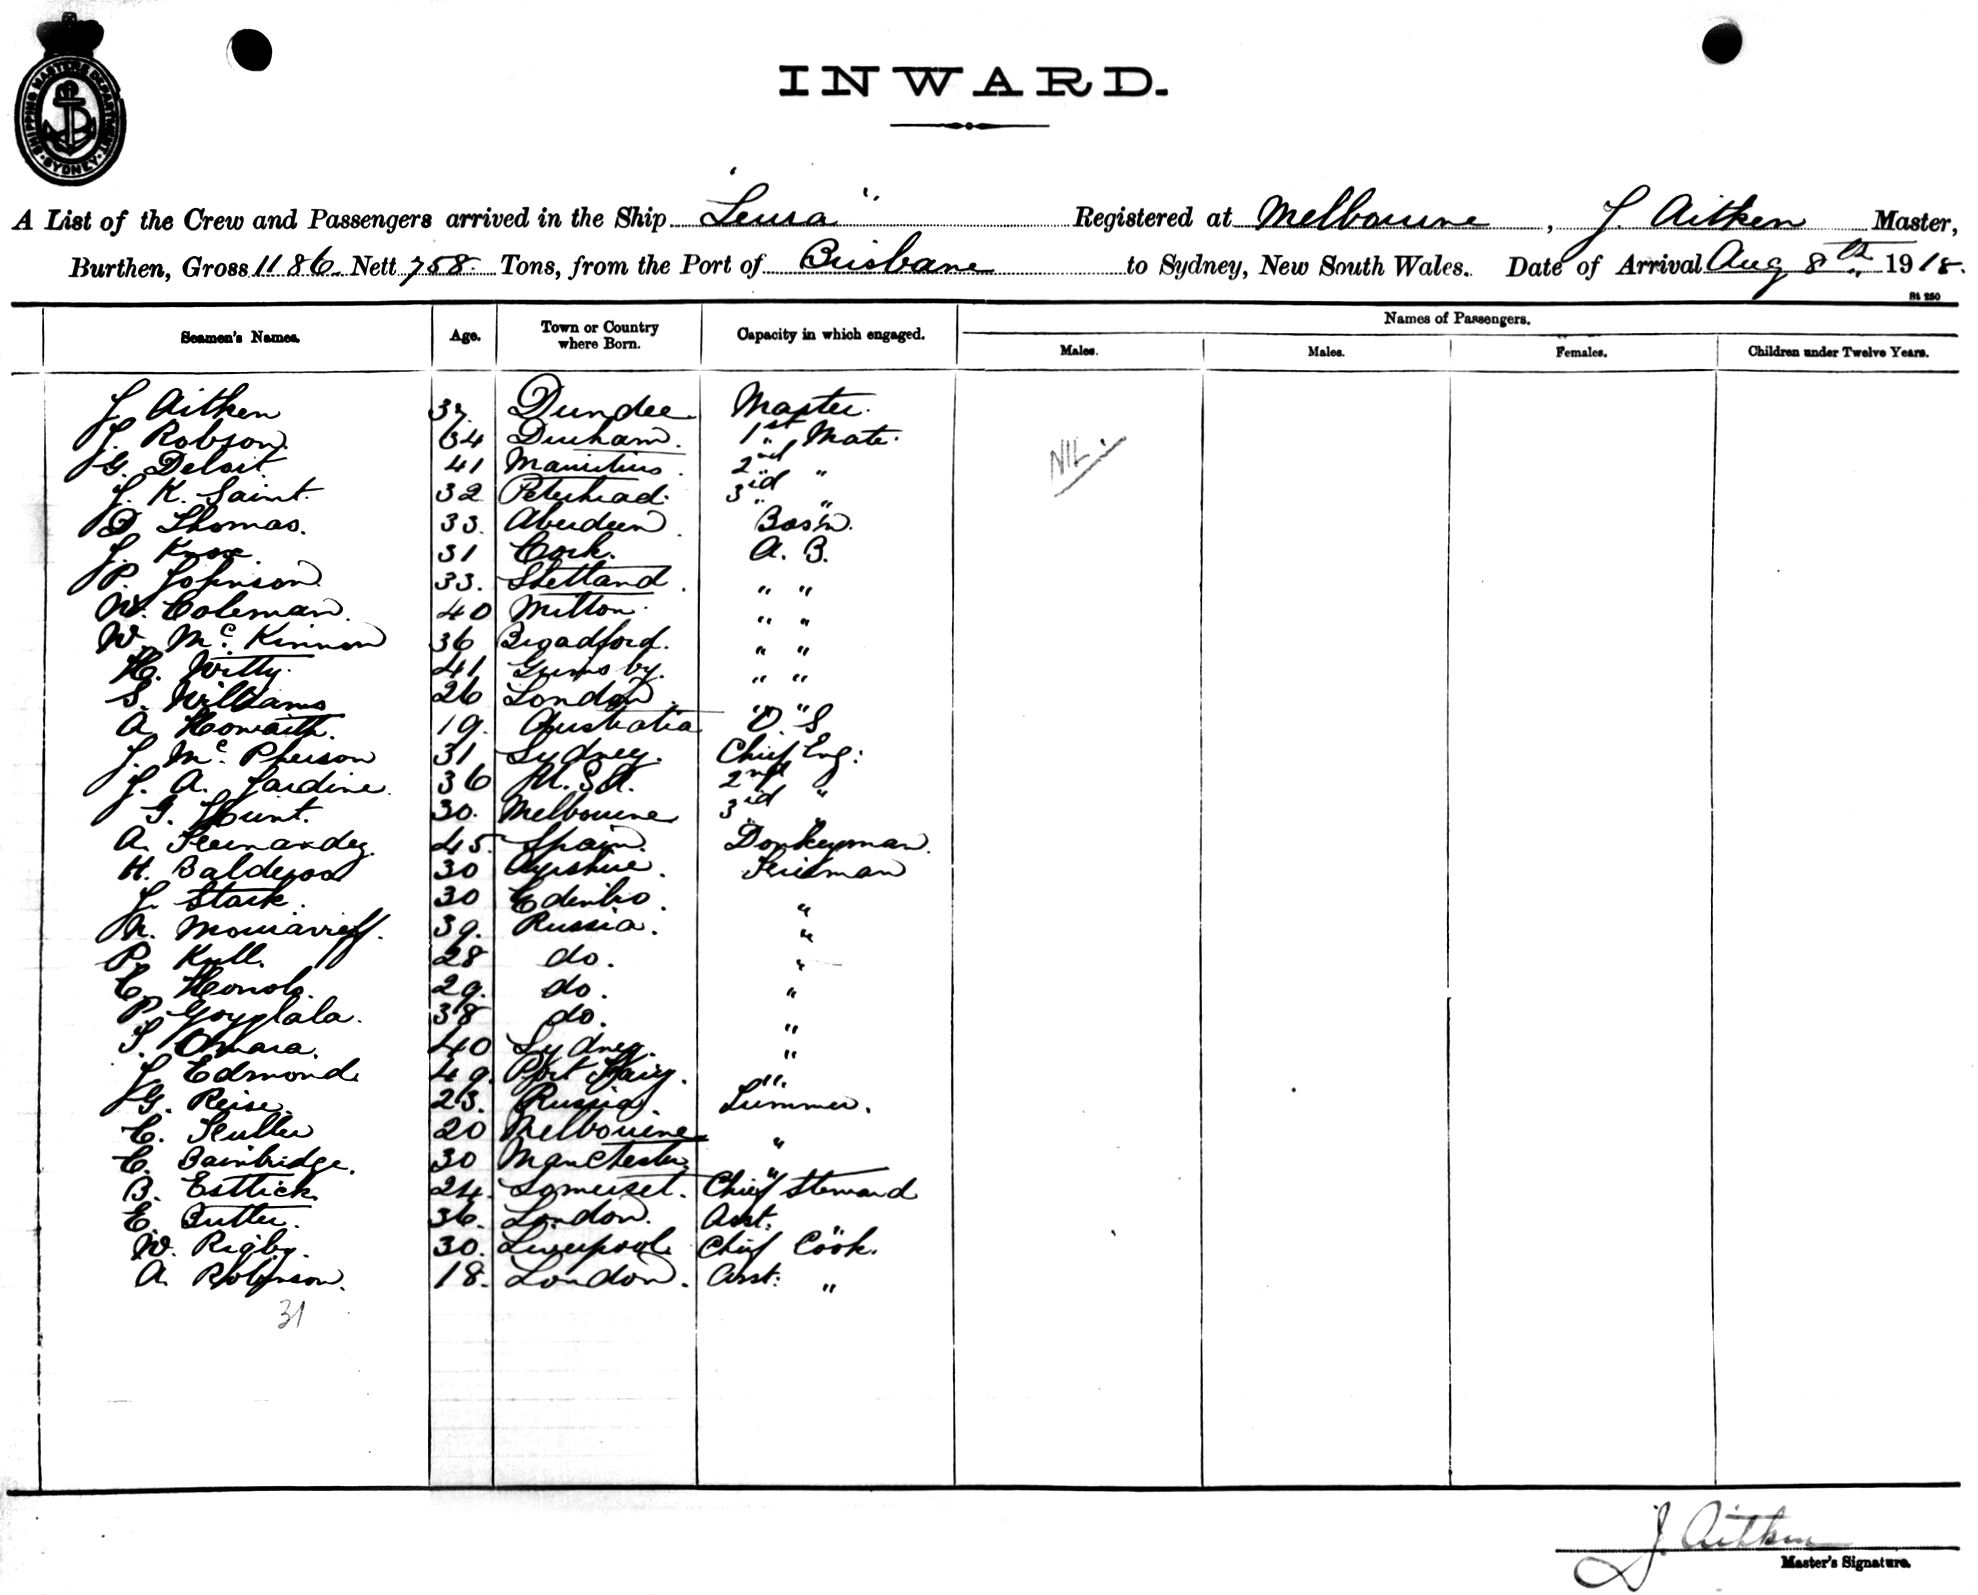 SHIPPING MASTERS DEPARTMENT. SYDNEY
INWARD.
A List of the Crew and Passengers arrived in the Ship "Leura" Registered at Melbourne, J. Aitken Master,
Burthen, Gross 1186 Nett 758 Tons, from the Port of Brisbane to Sydney, New South Wales. Date of Arrival Aug 8th 1918.
St 250
Seamen's Names. Age. Town or Country where Born. Capacity in which engaged. Names of Passengers.
Males. Males. Females. Children under Twelve Years.
J. Aitken 37. Dundee Master.
J. Robson. 64 Durham. 1st Mate. NIL.
G. Deloit 41 Mauritius. 2nd "
J. K. Saint. 32 Peterhead. 3rd "
D Thomas. 33. Aberdeen. Bos'n.
J. Knox. 31 Cork. A. B.
P. Johnson. 33. Shetland. " "
W. Coleman. 40 Milton. " "
W. Mc. Kinnon 36 Broadford. " "
H. Witty. 41. Grimsby. " "
S. Williams 26 London. " "
A Howarth. 19. Australia O. S
J. Mc. Pherson 31 Sydney. Chief Eng:
J. A. Jardine. 36 U.S.A. 2nd "
G. Hunt. 30. Melbourne 3rd "
A. Fernandez. 45. Spain. Donkeyman.
H. Balderson 30 Ayrshire. Fireman
J. Stark. 30 Edinbro. "
N. 39. Russia. "
P. Kull. 28 do. "
C. 29. do. "
P. 38 do. "
S. Omara. 40 Sydney. "
J. Edmonds 49. Port Fairy. "
G. Reise. 23. Russia. Trimmer.
C. 20 Melbourne "
C. Bainbridge. 30 Manchester. "
B. Esttick. 24. Somerset. Chief Steward
E. Butler. 36. London. Asst. "
W. Rigby. 30. Liverpool. Chief Cook.
A. Robinson. 18. London. Asst: "
31
J. Aitken
Master's Signature.